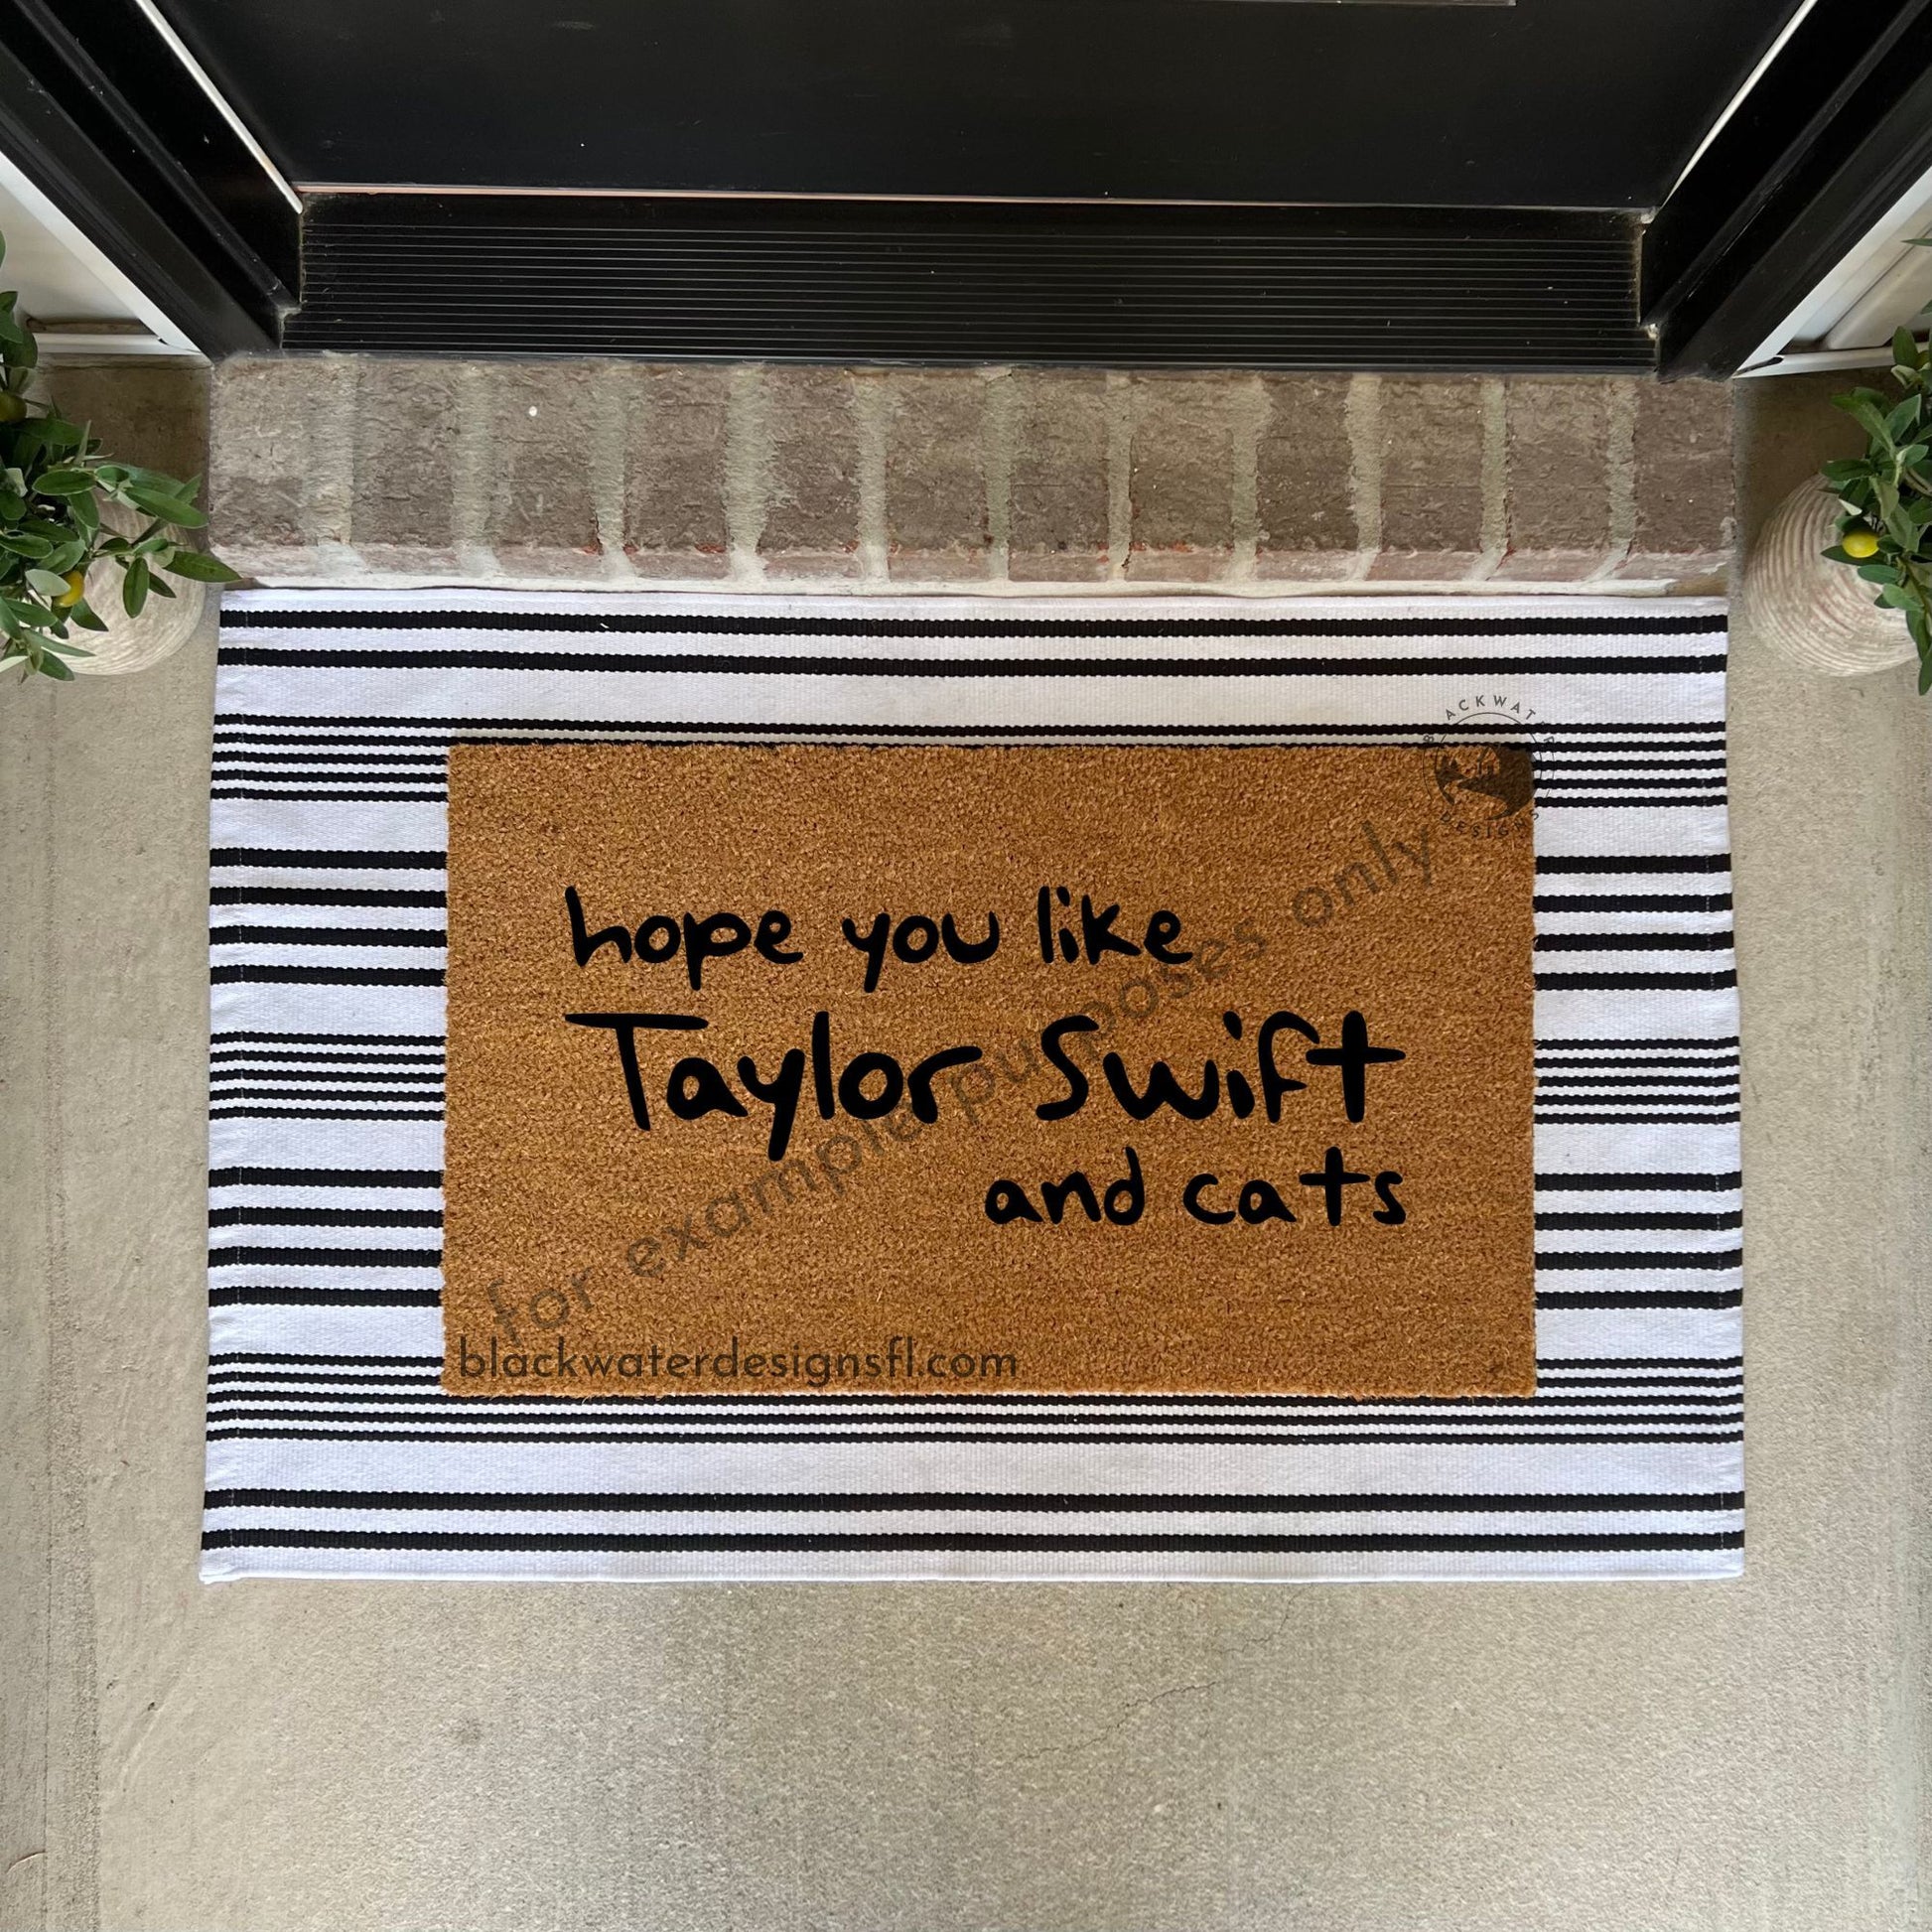 BLACKWATER
DESIGNS
hope you like
Taylor Swift
and cats
for example purposes only
blackwaterdesignsfl.com